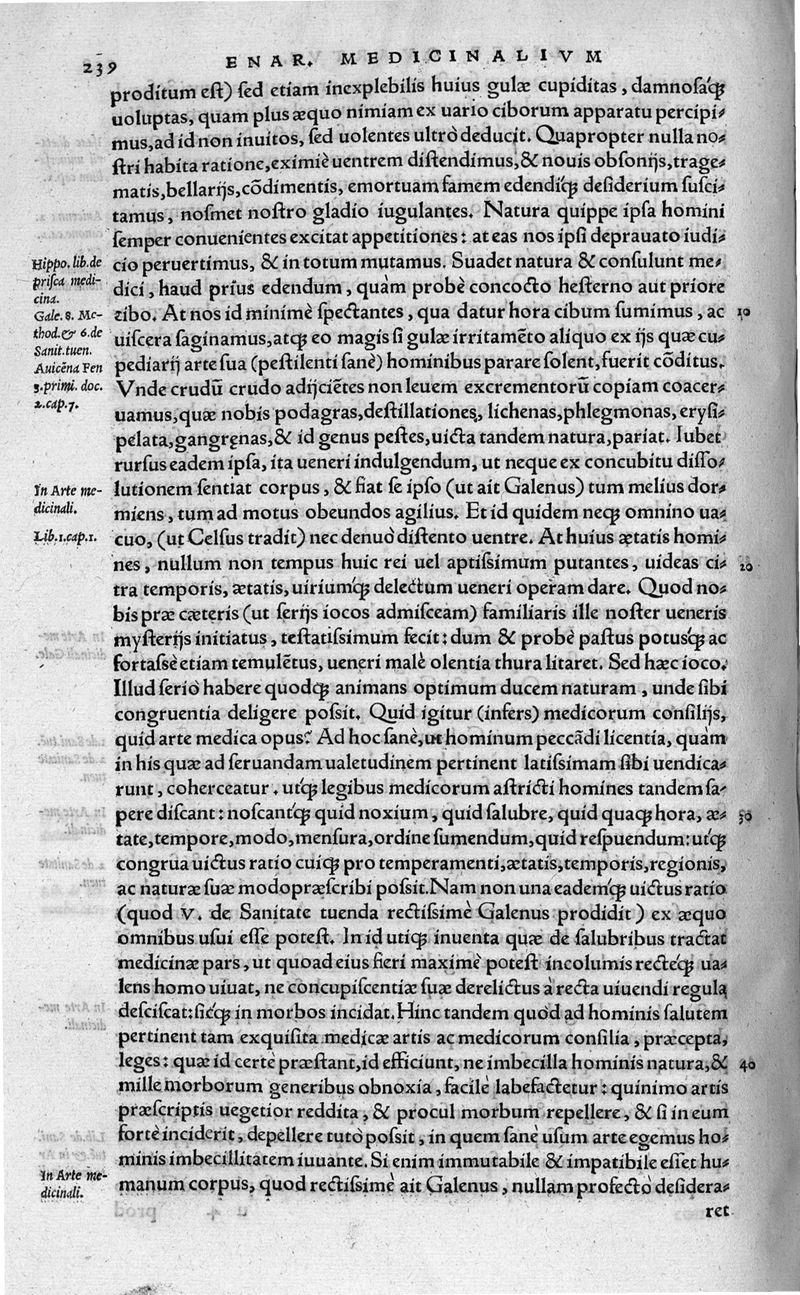 239 ENAR. MEDICINALIVM
proditum est) sed etiam inexplebilis huius gulæ cupiditas, damnosa´q;
uoluptas, quam plus æquo nimiam ex uario ciborum apparatu percipi-
mus, ad id non inuitos, sed uolentes ultrò deducit. Quapropter nulla no-
stri habita ratione, eximiè uentrem distendimus, & nouis obsonijs, trage-
matis, bellarijs, cõdimentis, emortuam famem edendi´q; desiderium susci-
tamus, nosmet nostro gladio iugulantes. Natura quippe ipsa homini
semper conuenientes excitat appetitiones: at eas nos ipsi deprauato iudi-
Hippo. lib. de
prisca medi-
cina.
cio peruertimus, & in totum mutamus. Suadet natura & consulunt me-
dici, haud prius edendum, quàm probè concocto hesterno aut priore
Gale. 8. Me-
thod. & 6. de
Sanit. tuen.
Auicẽna Fen
3. primi. doc.
2. cap. 7.
cibo. At nos id minimè spectantes, qua datur hora cibum sumimus, ac 10
uiscera saginamus, atq; eo magis si gulæ irritamẽto aliquo ex ijs quæ cu-
pediarij arte sua (pestilenti sanè) hominibus parare solent, fuerit cõditus.
Vnde crudũ crudo adijciẽtes non leuem excrementorũ copiam coacer-
uamus, quæ nobis podagras, destillationes, lichenas, phlegmonas, erysi-
pelata, gangręnas, & id genus pestes, uicta tandem natura, pariat. Iubet
rursus eadem ipsa, ita ueneri indulgendum, ut neque ex concubitu disso-
In Arte me-
dicinali.
lutionem sentiat corpus, & fiat se ipso (ut ait Galenus) tum melius dor-
miens, tum ad motus obeundos agilius. Et id quidem neq; omnino ua-
Lib. 1. cap. 1.
cuo, (ut Celsus tradit) nec denuò distento uentre. At huius ætatis homi-
nes, nullum non tempus huic rei uel aptissimum putantes, uideas ci- 20
tra temporis, ætatis, uirium´q; delectum ueneri operam dare. Quod no-
bis præ cæteris (ut serijs iocos admisceam) familiaris ille noster ueneris
mysterijs initiatus, testatissimum fecit: dum & probè pastus potus´q; ac
fortassè etiam temulẽtus, ueneri malè olentia thura litaret. Sed hæc ioco.
Illud seriò habere quodq; animans optimum ducem naturam, unde sibi
congruentia deligere possit. Quid igitur (infers) medicorum consilijs,
quid arte medica opus? Ad hoc sanè, ut hominum peccãdi licentia, quàm
in his quæ ad seruandam ualetudinem pertinent latissimam sibi uendica-
runt, coherceatur. ut´q; legibus medicorum astricti homines tandem sa-
pere discant: noscant´q; quid noxium, quid salubre, quid quaq; hora, æ- 30
tate, tempore, modo, mensura, ordine sumendum, quid respuendum: ut´q;
congrua uictus ratio cuiq; pro temperamenti, ætatis, temporis, regionis,
ac naturæ suæ modo præscribi possit. Nam non una eadem´q; uictus ratio
(quod V. de Sanitate tuenda rectissimè Galenus prodidit) ex æquo
omnibus usui esse potest. In id utiq; inuenta quæ de salubribus tractat
medicinæ pars, ut quoad eius fieri maximè potest incolumis recte´q; ua-
lens homo uiuat, ne concupiscentiæ suæ derelictus à recta uiuendi regula
desciscat: sic´q; in morbos incidat. Hinc tandem quòd ad hominis salutem
pertinent tam exquisita medicæ artis ac medicorum consilia, præcepta,
leges: quæ id certè præstant, id efficiunt, ne imbecilla hominis natura, & 40
mille morborum generibus obnoxia, facilè labefactetur: quinimo artis
præscriptis uegetior reddita, & procul morbum repellere, & si in eum
fortè inciderit, depellere tutò possit, in quem sanè usum arte egemus ho-
minis imbecillitatem iuuante. Si enim immutabile & impatibile esset hu-
In Arte me-
dicinali.
manum corpus, quod rectissimè ait Galenus, nullam profectò desidera-
ret